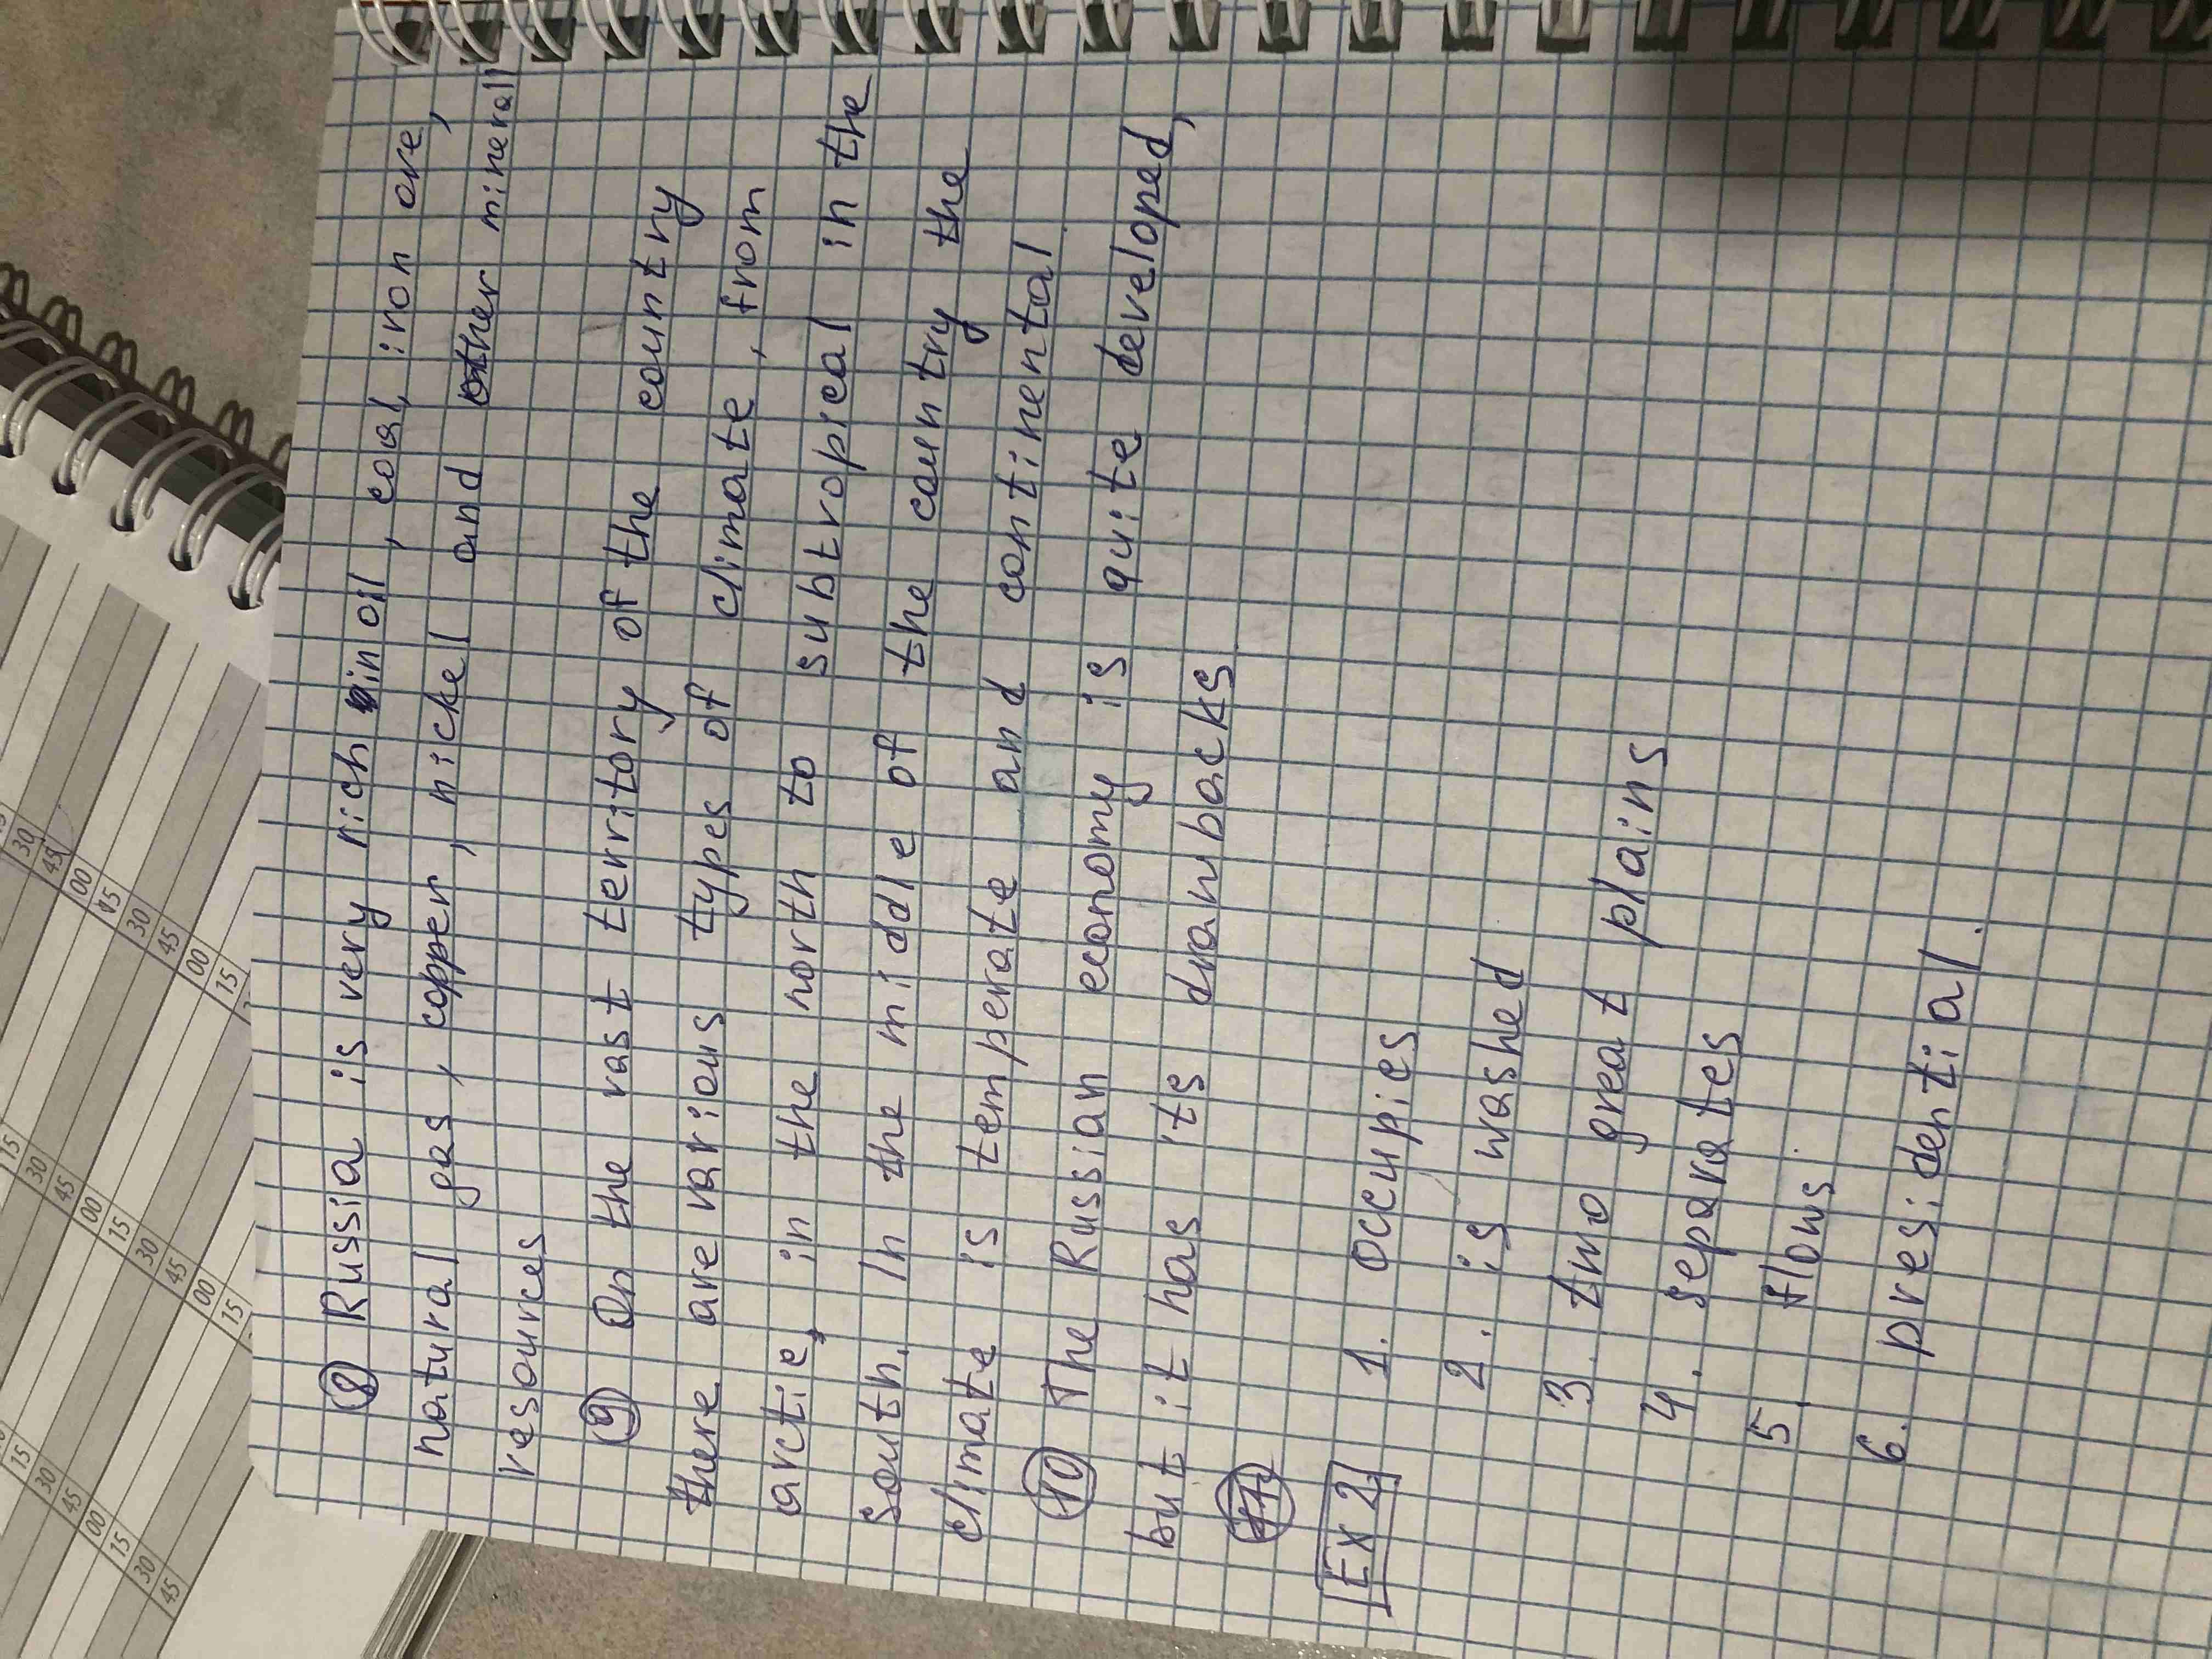 8 Russia is very rich in oil, coal, iron ore,
natural gas, copper, nickel and other mineral
resources
9 On the vast territory of the country
there are various types of climate, from
arctic, in the north to subtropical in the
south. In the middle of the country the
climate is temperate and continental
10 The Russian economy is quite developed,
but it has its drawbacks
Ex 2 1. occupies
2. is washed
3. two great plains
4. separates
5. flows
6. presidential.
30
45
00
15
30
45
00
15
15
30
45
00
15
30
45
00
15
15
30
45
00
15
30
45